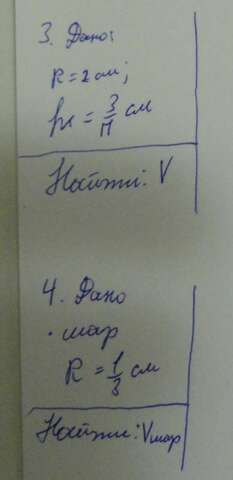 3. Дано:
R = 2 см;
h = 3/π см
Найти: V
4. Дано
· шар
R = 1/3 см
Найти: Vшар